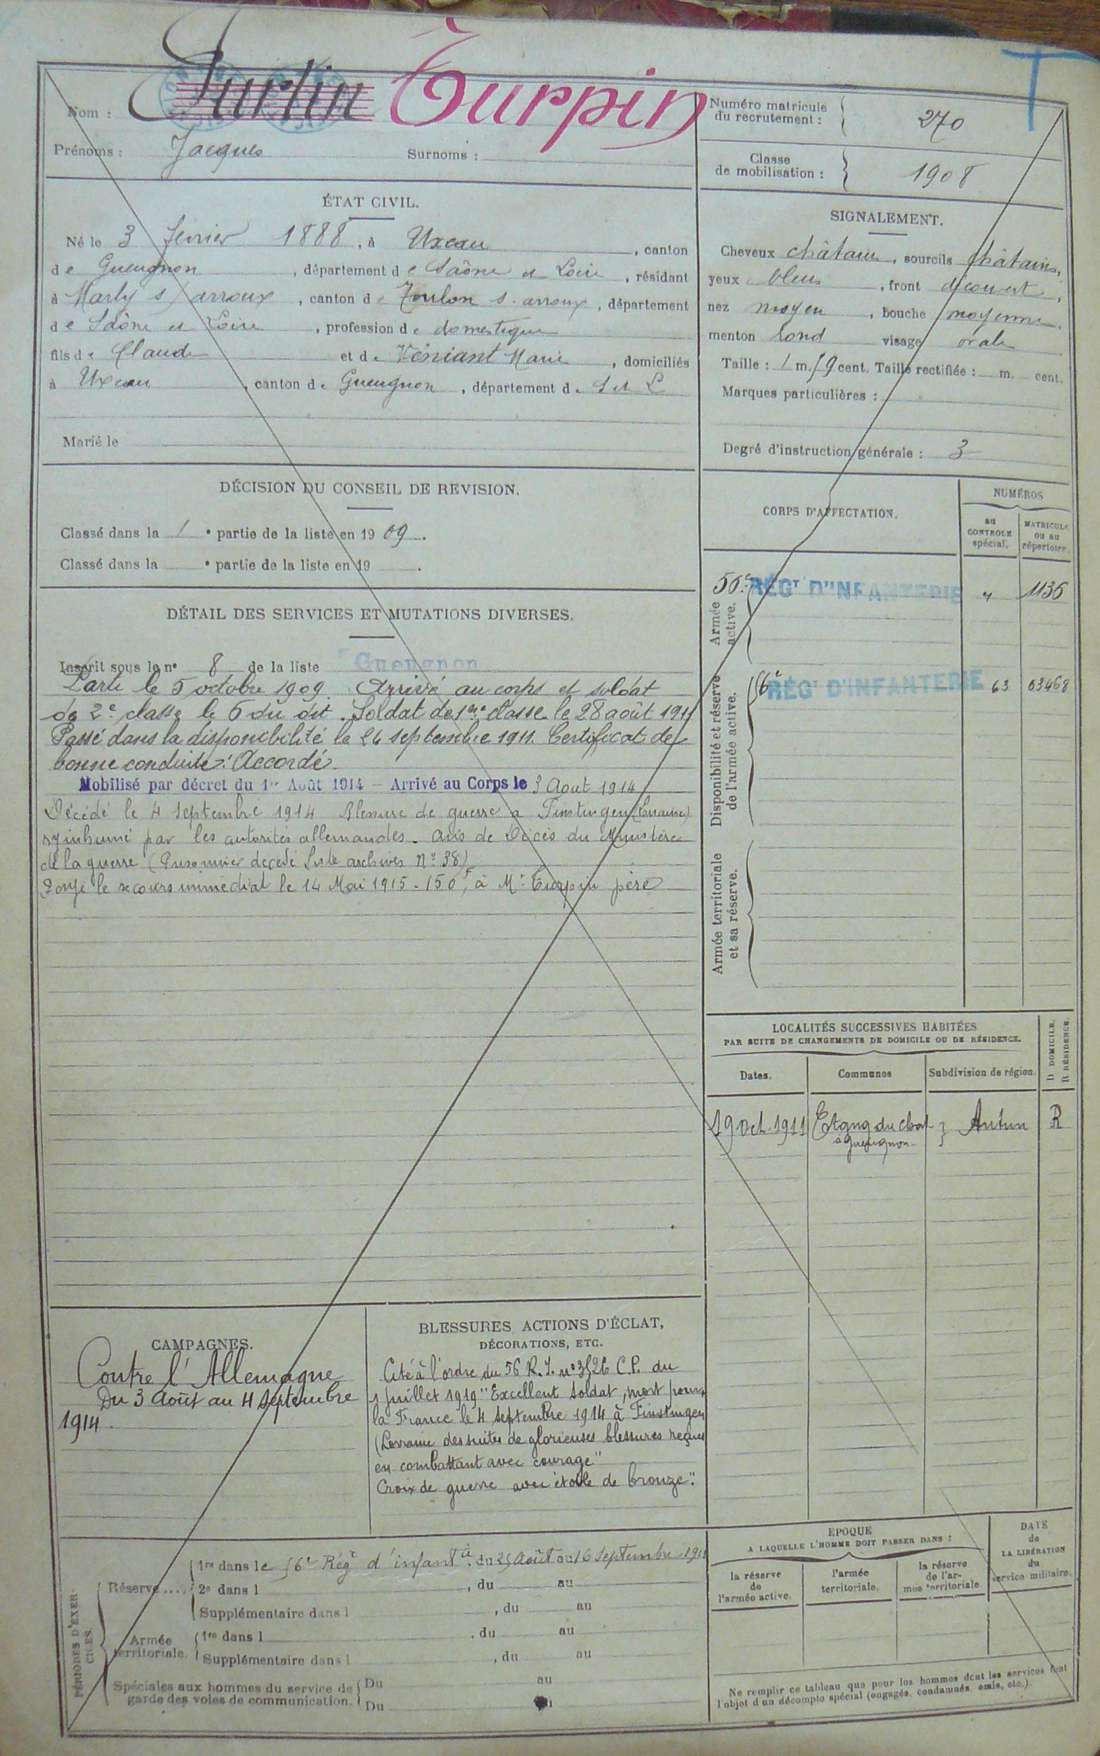 T
Nom : Turpin Turpin
Prénoms : Jacques Surnoms :
Numéro matricule
du recrutement : 270
Classe
de mobilisation : 1908
ÉTAT CIVIL.
Né le 3 février 1888, à Uxeau, canton
de Gueugnon, département de Saône et Loire, résidant
à Marly s/ arroux, canton de Toulon s. arroux, département
de Saône et Loire, profession de domestique
fils de Claude et de Véniant Marie, domiciliés
à Uxeau, canton de Gueugnon, département de S et L
Marié le
SIGNALEMENT.
Cheveux châtains, sourcils châtains,
yeux bleus, front découvert,
nez moyen, bouche moyenne,
menton rond visage ovale
Taille : 1 m. 59 cent. Taille rectifiée : m. cent.
Marques particulières :
Degré d'instruction générale : 3
DÉCISION DU CONSEIL DE REVISION.
Classé dans la 1e partie de la liste en 1909.
Classé dans la e partie de la liste en 19 .
DÉTAIL DES SERVICES ET MUTATIONS DIVERSES.
Inscrit sous le n° 8 de la liste Gueugnon
Parti le 5 octobre 1909. Arrivé au corps et soldat
de 2e classe le 6 du dit. Soldat de 1re classe le 28 août 1911
Passé dans la disponibilité le 24 septembre 1911. Certificat de
bonne conduite : Accordé.
Mobilisé par décret du 1er Août 1914 – Arrivé au Corps le 3 Aout 1914
Décédé le 4 septembre 1914 Blessure de guerre à Finstingen (Lorraine)
inhumé par les autorités allemandes. Avis de Décès du Ministère
de la guerre (Prisonnier décédé Liste archives N° 38)
Payé le secours immédiat le 14 Mai 1915 - 150f, à Mr Turpin père
CORPS D'AFFECTATION.
NUMÉROS
au
CONTROLE
spécial.
MATRICULE
ou au
répertoire.
Armée
active.
56e RÉGT D'INFANTERIE " 1135
Disponibilité et réserve
de l'armée active.
56e RÉGT D'INFANTERIE 63 03468
Armée territoriale
et sa réserve.
LOCALITÉS SUCCESSIVES HABITÉES
PAR SUITE DE CHANGEMENTS DE DOMICILE OU DE RÉSIDENCE.
Dates. Communes Subdivision de région. D DOMICILE. R RÉSIDENCE.
19 Oct. 1911 Etang du chat Autun R
à Gueugnon
CAMPAGNES.
Contre l'Allemagne
Du 3 Août au 4 Septembre
1914.
BLESSURES, ACTIONS D'ÉCLAT,
DÉCORATIONS, ETC.
Cité à l'ordre du 56 R.I. n° 3/26 C.P. du
1 juillet 1919 "Excellent soldat, mort pour
la France le 4 septembre 1914 à Finstingen
(Lorraine des suites de glorieuses blessures reçues
en combattant avec courage"
Croix de guerre avec étoile de bronze".
PÉRIODES D'EXERCICES.
Réserve
1re dans le 56e Régt d'infantie, du 25 Août au 16 Septembre 191
2e dans l , du au
Supplémentaire dans l , du au
Armée
territoriale.
1re dans l , du au
Supplémentaire dans l , du au
Spéciales aux hommes du service de
garde des voies de communication.
Du au
Du
EPOQUE
A LAQUELLE L'HOMME DOIT PASSER DANS :
la réserve
de
l'armée active.
l'armée
territoriale.
la réserve
de l'ar-
mée territoriale
DATE
de
LA LIBÉRATION
du
service militaire.
Ne remplir ce tableau que pour les hommes dont les services font
l'objet d'un décompte spécial (engagés, condamnés, omis, etc.)